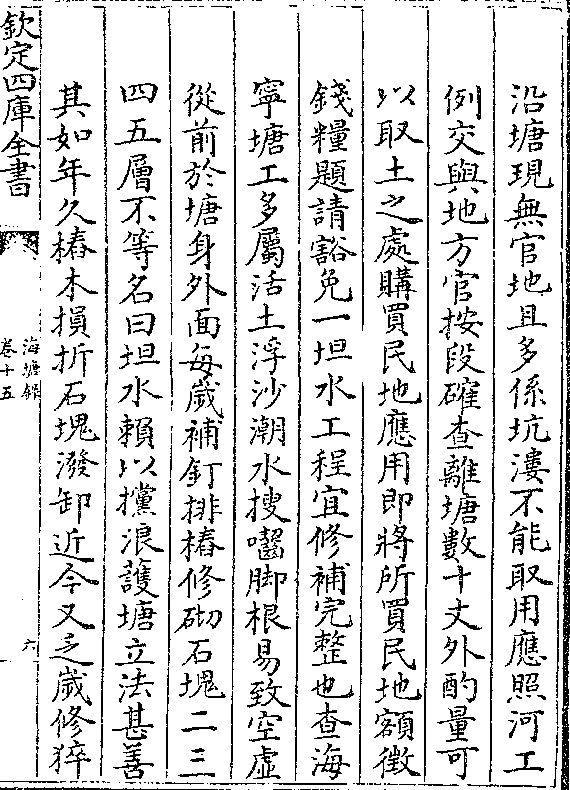 沿塘現無官地且多係坑漊不能取用應照河工
例交與地方官按段確查離塘數十丈外酌量可
以取土之處購買民地應用即將所買民地額徴
錢糧題請豁免一坦水工程宜修補完整也查海
寧塘工多屬活土浮沙潮水搜囓脚根易致空虛
從前於塘身外面每嵗補釘排樁修砌石塊二三
四五層不等名曰坦水賴以攩浪護塘立法甚善
其如年久樁木損折石塊潑卸近今又乏嵗修猝
欽定四庫全書
海塘録
卷十五
六